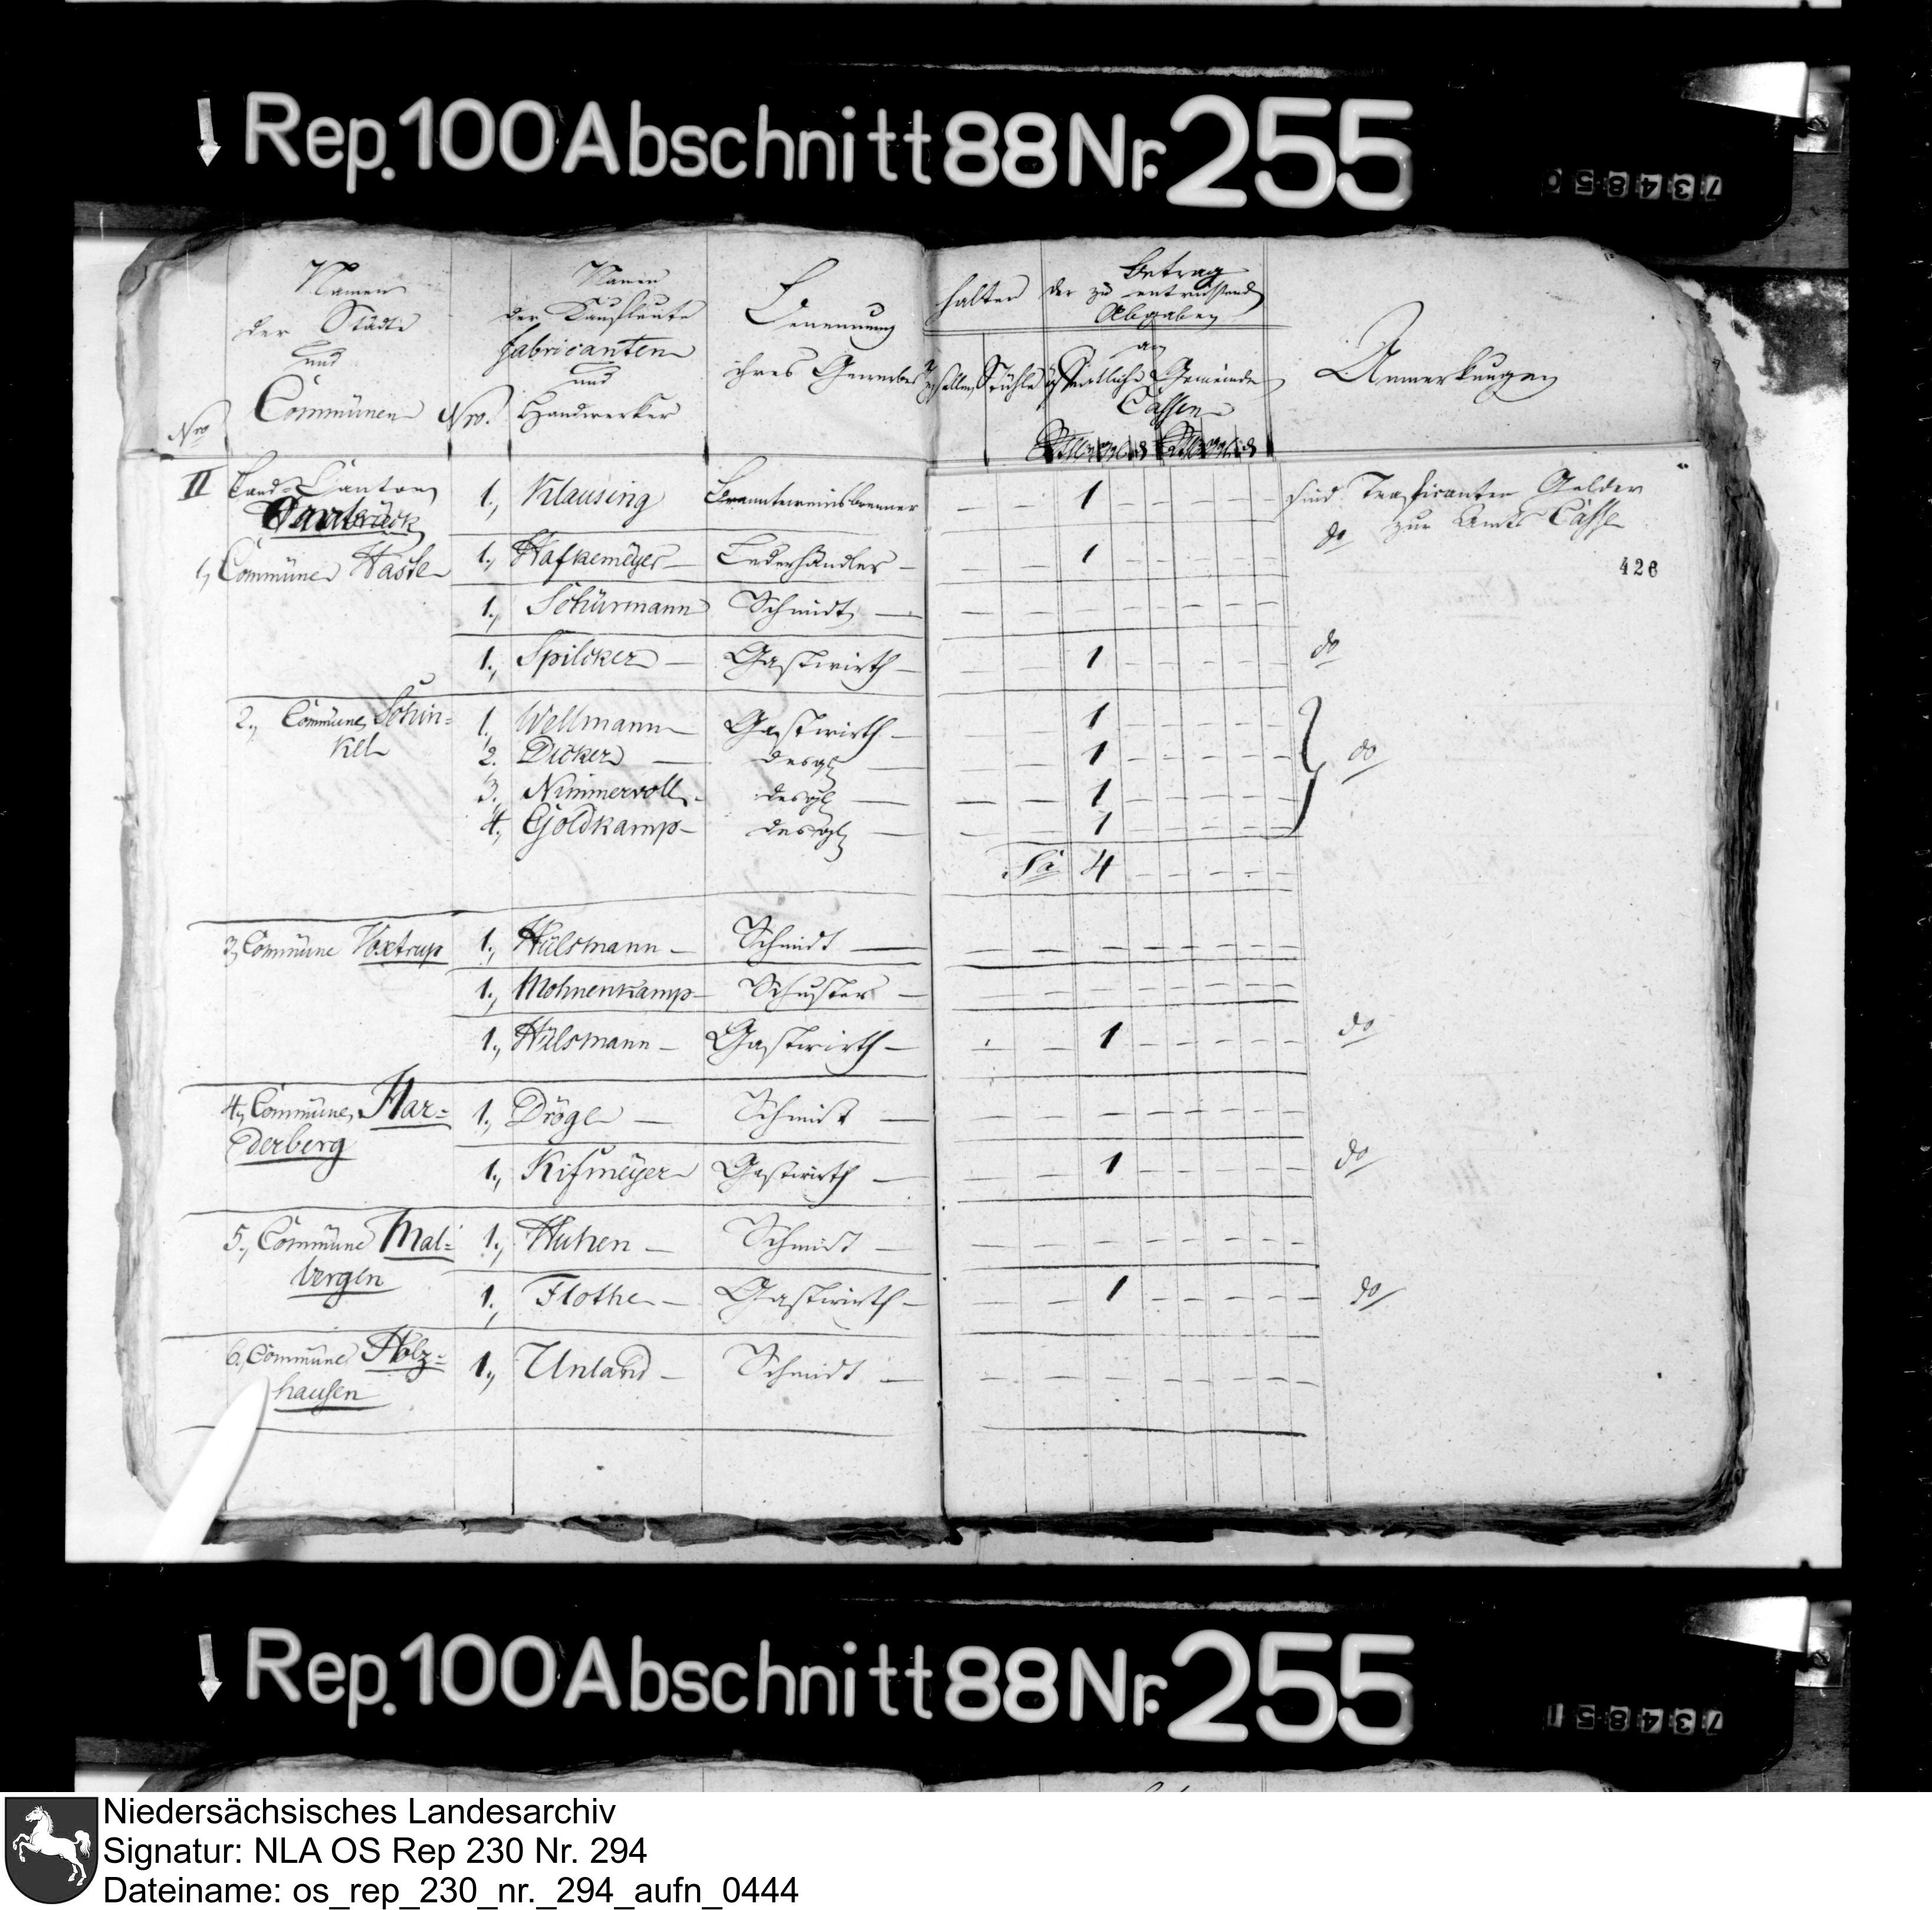 Rep.100 Abschnitt 88 Nr. 255
73485 0
Namen der Städte und Communen
Nro
Nro.
Namen der Kaufleute fabricanten und Handwerker
Benennung ihres Gewerbes
halten
Gesellen Stühle
Betrag der zu entrichtenden Abgaben
an
öffentliche Gemeinde
Cassen
Anmerkungen
II Land-Canton Osnabrück
1., Klausing Branntweinsbrenner — — 1 — — — — sind Trafikanten Gelder zur Amts Casse
1, Commüne Haste 1., Hafkemeyer — Lederhändler — — — 1 — — — — do
426
1., Schürmann Schmidt — — — — — — — —
1., Spilcker — Gastwirth — — — 1 — — — — do
2., Commüne Schin=
kel
1. Wellmann Gastwirth — — — 1 — — — —
2. Dicker — desgl — — — 1 — — — — do
3. Nimmervoll — desgl — — — 1 — — — —
4., Goldkamp — desgl — — — 1 — — — —
Sa 4 — — — —
3, Commüne Voxtrup 1., Hülsmann — Schmidt — — — — — — — —
1., Mohnenkamp — Schuster — — — — — — — —
1., Hülsmann — Gastwirth — — — 1 — — — — do
4, Commüne Har=
derberg
1., Dröge — Schmidt — — — — — — — —
1., Kifmeyer Gastwirth — — — 1 — — — — do
5., Commüne Mal=
bergen
1., Huhen — Schmidt — — — — — — — —
1., Flothe — Gastwirth — — — 1 — — — — do
6., Commüne Holz=
hausen
1., Unland — Schmidt — — — — — — — —
Rep.100 Abschnitt 88 Nr. 255
73485 1
Niedersächsisches Landesarchiv
Signatur: NLA OS Rep 230 Nr. 294
Dateiname: os_rep_230_nr._294_aufn_0444